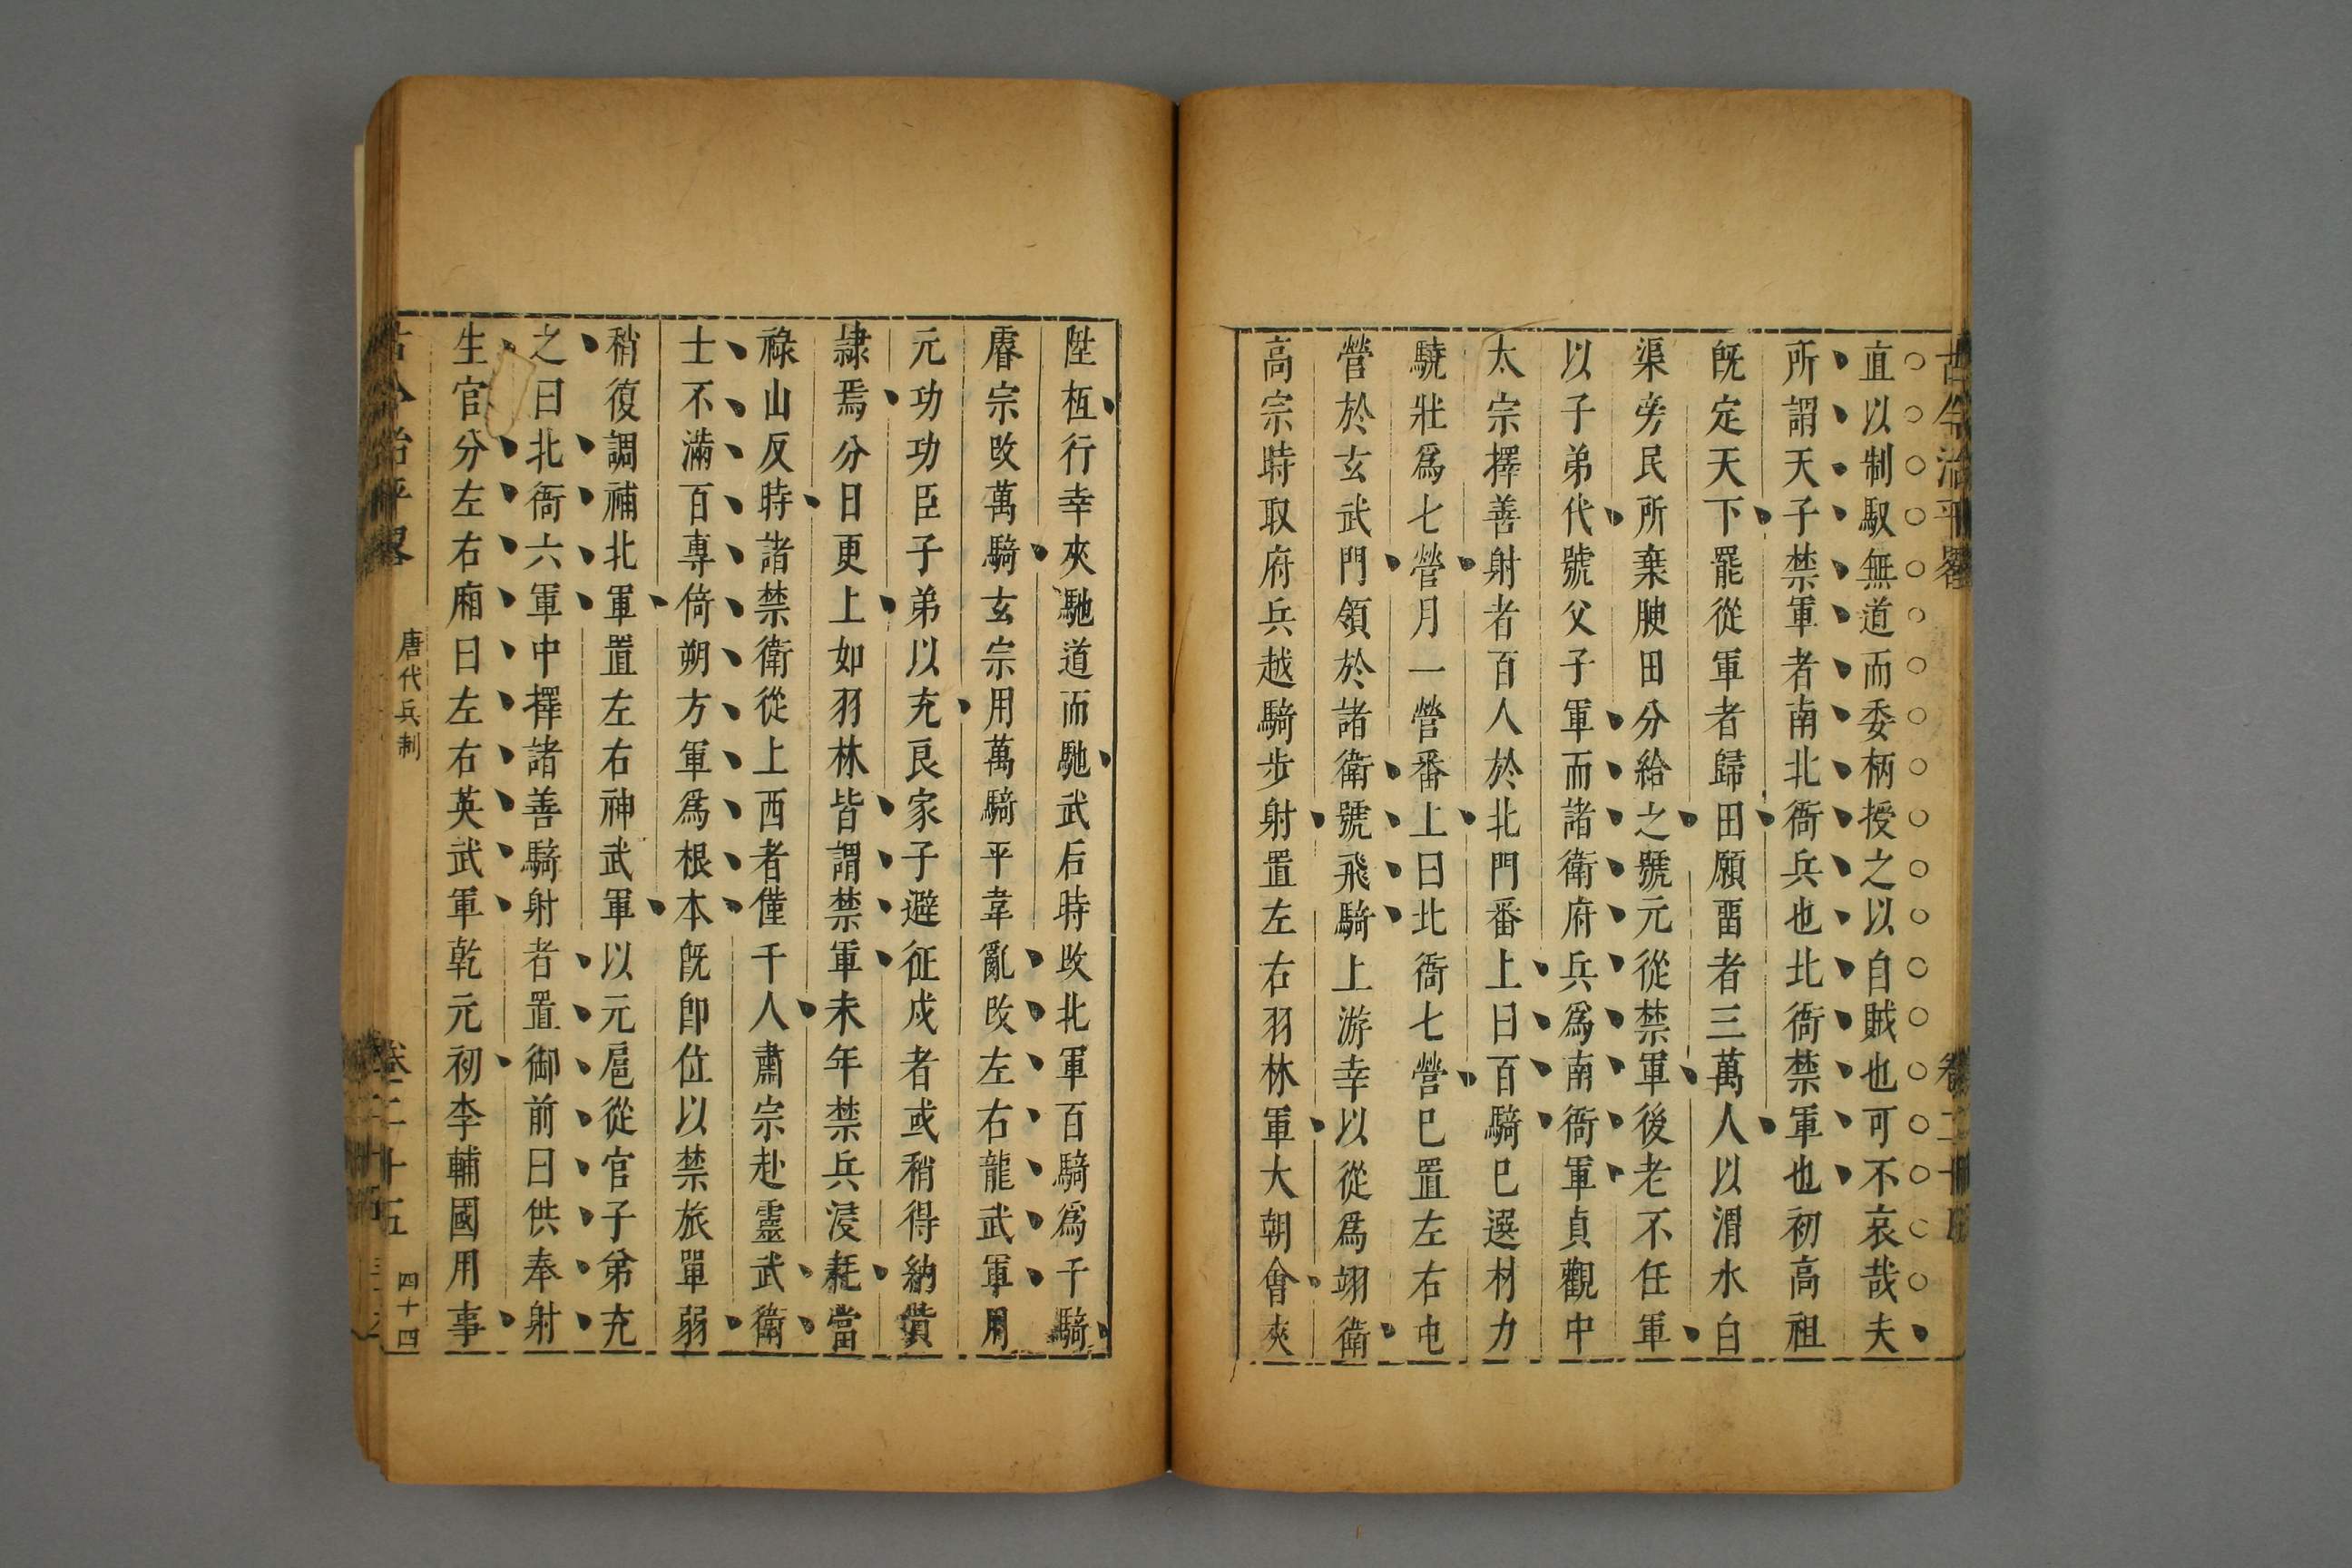 古今治平畧 卷二十五
直以制馭無道而委柄授之以自賊也可不哀哉夫
所謂天子禁軍者南北衙兵也北衙禁軍也初高祖
旣定天下罷從軍者歸田願畱者三萬人以渭水白
渠旁民所棄腴田分給之號元從禁軍後老不任軍
以子弟代號父子軍而諸衛府兵爲南衙軍貞觀中
太宗擇善射者百人於北門番上曰百騎巳選材力
驍壯爲七營月一營番上曰北衙七營巳置左右屯
營於玄武門領於諸衛號飛騎上游幸以從爲翊衛
高宗時取府兵越騎步射置左右羽林軍大朝會夾
陛恆行幸夾馳道而馳武后時攺北軍百騎爲千騎
睿宗攺萬騎玄宗用萬騎平韋亂攺左右龍武軍用
元功功臣子弟以充良家子避征戍者或稍得納貲
隷焉分日更上如羽林皆謂禁軍末年禁兵浸耗當
祿山反時諸禁衛從上西者僅千人肅宗赴靈武衛
士不滿百專倚朔方軍爲根本旣卽位以禁旅單弱
稍復調補北軍置左右神武軍以元扈從官子弟充
之曰北衙六軍中擇諸善騎射者置御前曰供奉射
生官分左右廂曰左右英武軍乾元初李輔國用事
古今治平畧 唐代兵制 卷二十五 四十四